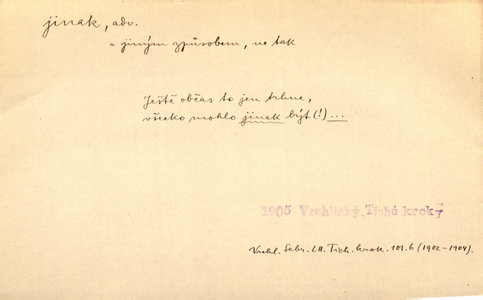 jinak, adv.
= jiným způsobem, ne tak
Ještě občas to jen trhne,
všecko mohlo jinak být (!) ...
1905 Vrchlický, Tiché kroky
Vrchl. Sebr. LII. Tich. krok. 101.6 (1902-1904).